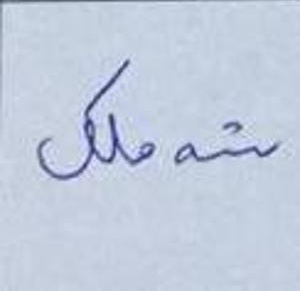 شه ملک